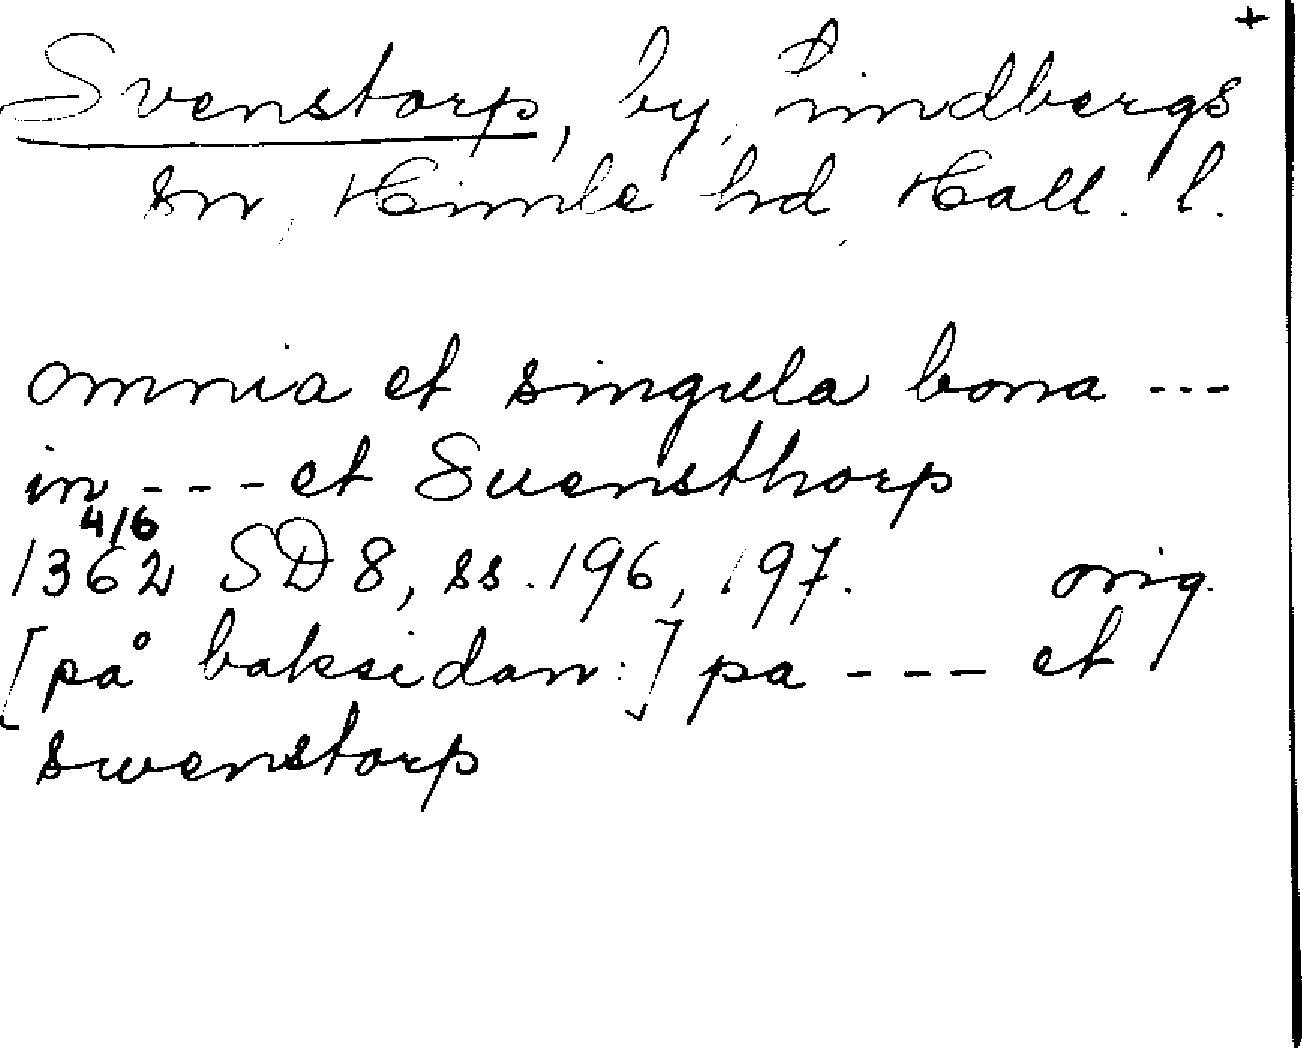 +
Svenstorp, by, Lindbergs
sn, Himle hd, Hall. l.
omnia et singula bona ---
in --- et Suensthorp
4/6
1362 SD 8, ss. 196, 197. orig.
[på baksidan:] pa --- et
swenstorp